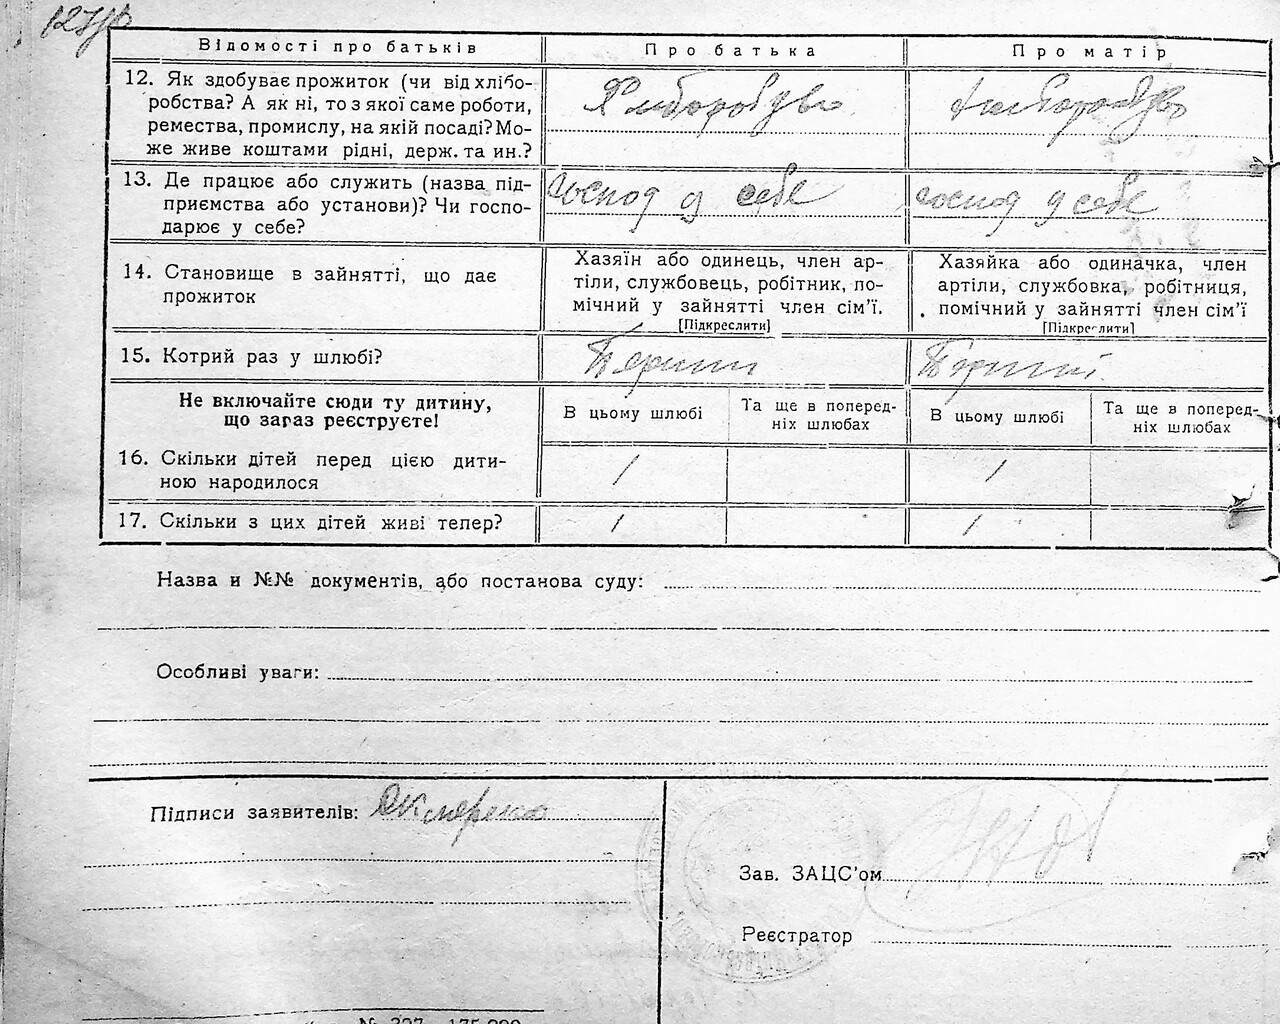 Відомості про батьків
Про батька
Про матір
12. Як здобуває прожиток (чи від хлібо-
робства? А як ні, то з якої саме роботи,
ремества, промислу, на якій посаді? Мо-
же живе коштами рідні, держ. та ин.?
Хліборобство
Хліборобство
13. Де працює або служить (назва під-
приємства або установи)? Чи госпо-
дарює у себе?
господ у себе
господ у себе
14. Становище в зайнятті, що дає
прожиток
Хазяїн або одинець, член ар-
тіли, службовець, робітник, по-
мічний у зайнятті член сім’ї.
[Підкреслити]
Хазяйка або одиначка, член
артіли, службовка, робітниця,
помічний у зайнятті член сім’ї
[Підкреслити]
15. Котрий раз у шлюбі?
Перший
Перший
Не включайте сюди ту дитину,
що зараз реєструєте!
В цьому шлюбі
Та ще в поперед-
ніх шлюбах
В цьому шлюбі
Та ще в поперед-
ніх шлюбах
16. Скільки дітей перед цією дити-
ною народилося
1
1
17. Скільки з цих дітей живі тепер?
1
1
Назва и №№ документів, або постанова суду:
Особливі уваги:
Підписи заявителів:
Зав. ЗАЦС’ом
Реєстратор
№ 327—175.000